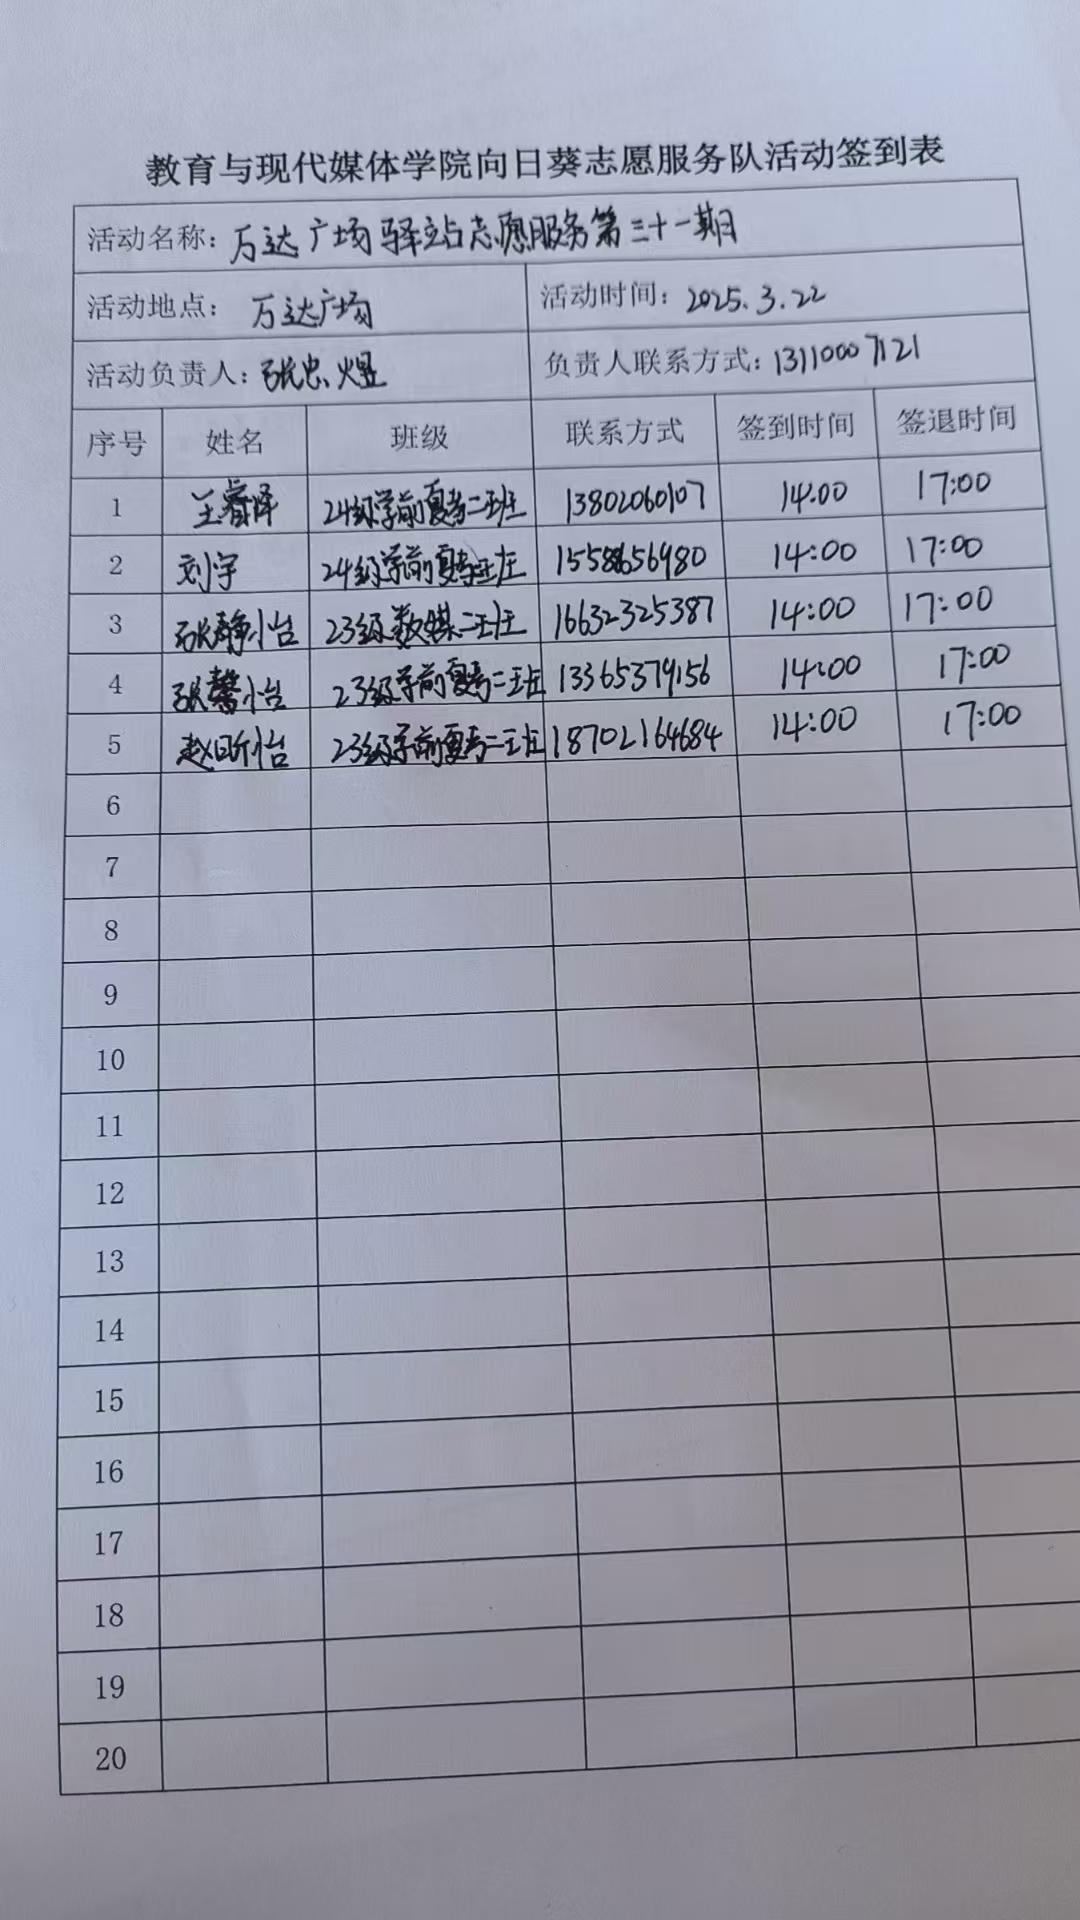 教育与现代媒体学院向日葵志愿服务队活动签到表
活动名称：万达广场驿站志愿服务第三十一期
活动地点：万达广场 活动时间：2025.3.22
活动负责人：张忠煜 负责人联系方式：13110007121
序号 姓名 班级 联系方式 签到时间 签退时间
1 王睿泽 24级学前夏考二班 13802060107 14:00 17:00
2 刘宇 24级学前夏考班 14:00 17:00
3 张静怡 23级数媒二班 16632325387 14:00 17:00
4 张馨怡 23级学前夏考二班 13365379156 14:00 17:00
5 赵昕怡 23级学前夏考二班 18702164684 14:00 17:00
6
7
8
9
10
11
12
13
14
15
16
17
18
19
20